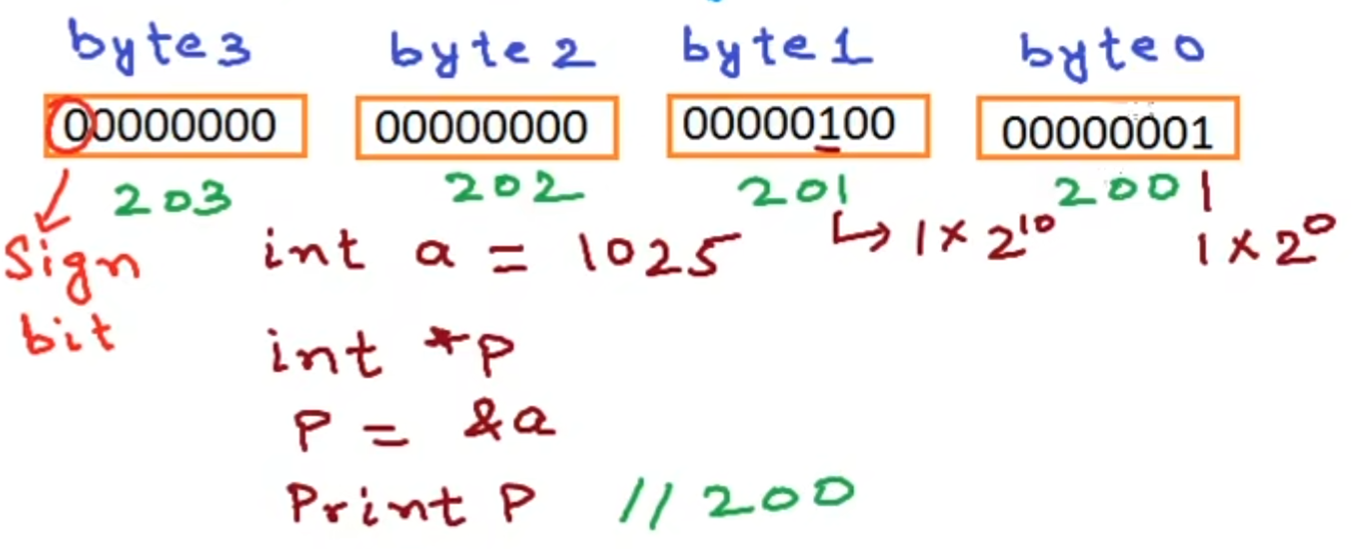 byte3 byte2 byte1 byte0
00000000 00000000 00000100 00000001
203 202 201 200
Sign bit
int a = 1025 1 × 2^10 1 × 2^0
int *p
P = &a
Print P // 200